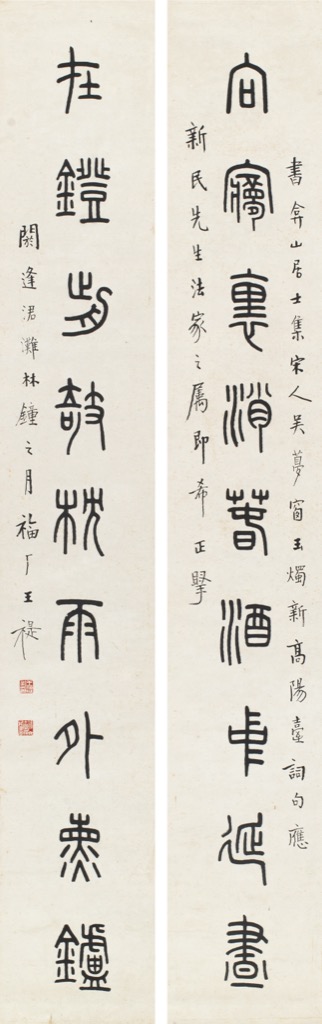 向㝱裏消春酒中延晝
書弇山居士集宋人吳夢窗玉燭新高陽臺詞句應
新民先生法家之屬即希正
在鐙前欹枕雨外熏鑪
閼逢涒灘林鐘之月福厂王禔